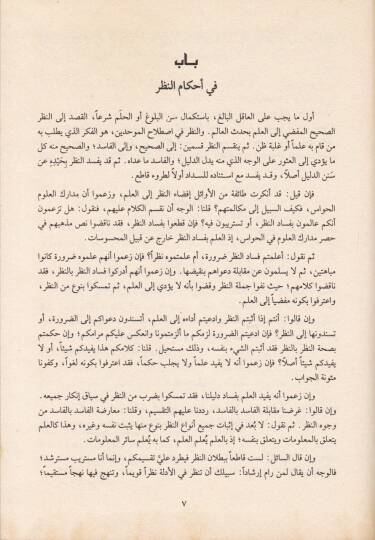 باب
في أحكام النظر
أول ما يجب على العاقل البالغ، باستكمال سن البلوغ أو الحلم شرعاً، القصد إلى النظر
الصحيح المفضي إلى العلم بحدث العالم. والنظر في اصطلاح الموحدين، هو الفكر الذي يطلب به
من قام به علماً أو غلبة ظن. ثم ينقسم النظر قسمين: إلى الصحيح، وإلى الفاسد؛ والصحيح منه كل
ما يؤدي إلى العثور على الوجه الذي منه يدل الدليل؛ والفاسد ما عداه. ثم قد يفسد النظر بحَيْدِهِ عن
سَنن الدليل أصلاً، وقد يفسد مع استناده للسداد أولاً لطروء قاطع.
فإن قيل: قد أنكرت طائفة من الأوائل إفضاء النظر إلى العلم، وزعموا أن مدارك العلوم
الحواس، فكيف السبيل إلى مكالمتهم؟ قلنا: الوجه أن نقسم الكلام عليهم، فنقول: هل تزعمون
أنكم عالمون بفساد النظر، أو تستريبون فيه؟ فإن قطعوا بفساد النظر، فقد ناقضوا نص مذهبهم في
حصر مدارك العلوم في الحواس، إذ العلم بفساد النظر خارج عن قبيل المحسوسات.
ثم نقول: أعلمتم فساد النظر ضرورة، أم علمتموه نظراً؟ فإن زعموا أنهم علموه ضرورة كانوا
مباهتين، ثم لا يسلمون عن مقابلة دعواهم بنقيضها. وإن زعموا أنهم أدركوا فساد النظر بالنظر، فقد
ناقضوا كلامهم؛ حيث نفوا جملة النظر وقضوا بأنه لا يؤدي إلى العلم، ثم تمسكوا بنوع من النظر،
واعترفوا بكونه مفضياً إلى العلم.
وإن قالوا: أنتم إذا أثبتم النظر وادعيتم أداءه إلى العلم، أتسندون دعواكم إلى الضرورة، أو
تسندونها إلى النظر؟ فإن ادعيتم الضرورة لزمكم ما ألزمتمونا وانعكس عليكم مرامكم؛ وإن حكمتم
بصحة النظر بالنظر فقد أثبتم الشيء بنفسه، وذلك مستحيل. قلنا: كلامكم هذا يفيدكم شيئاً، أو لا
يفيدكم شيئاً أصلاً؟ فإن زعموا أنه لا يفيد علماً ولا يجلب حكماً، فقد اعترفوا بكونه لغواً، وكفونا
مئونة الجواب.
وإن زعموا أنه يفيد العلم بفساد دليلنا، فقد تمسكوا بضرب من النظر في سياق إنكار جميعه.
وإن قالوا: غرضنا مقابلة الفاسد بالفاسد، رددنا عليهم التقسيم، وقلنا: معارضة الفاسد بالفاسد من
وجوه النظر. ثم نقول: لا بُعد في إثبات جميع أنواع النظر بنوع منها يثبت نفسه وغيره، وهذا كالعلم
يتعلق بالمعلومات ويتعلق بنفسه؛ إذ بالعلم يُعلم العلم، كما به يُعلم سائر المعلومات.
وإن قال السائل: لست قاطعاً ببطلان النظر فيطرد عليَّ تقسيمكم، وإنما أنا مستريب مسترشد؛
فالوجه أن يقال لمن رام إرشاداً: سبيلك أن تنظر في الأدلة نظراً قويماً، وتنهج فيها نهجاً مستقيماً؛
٧